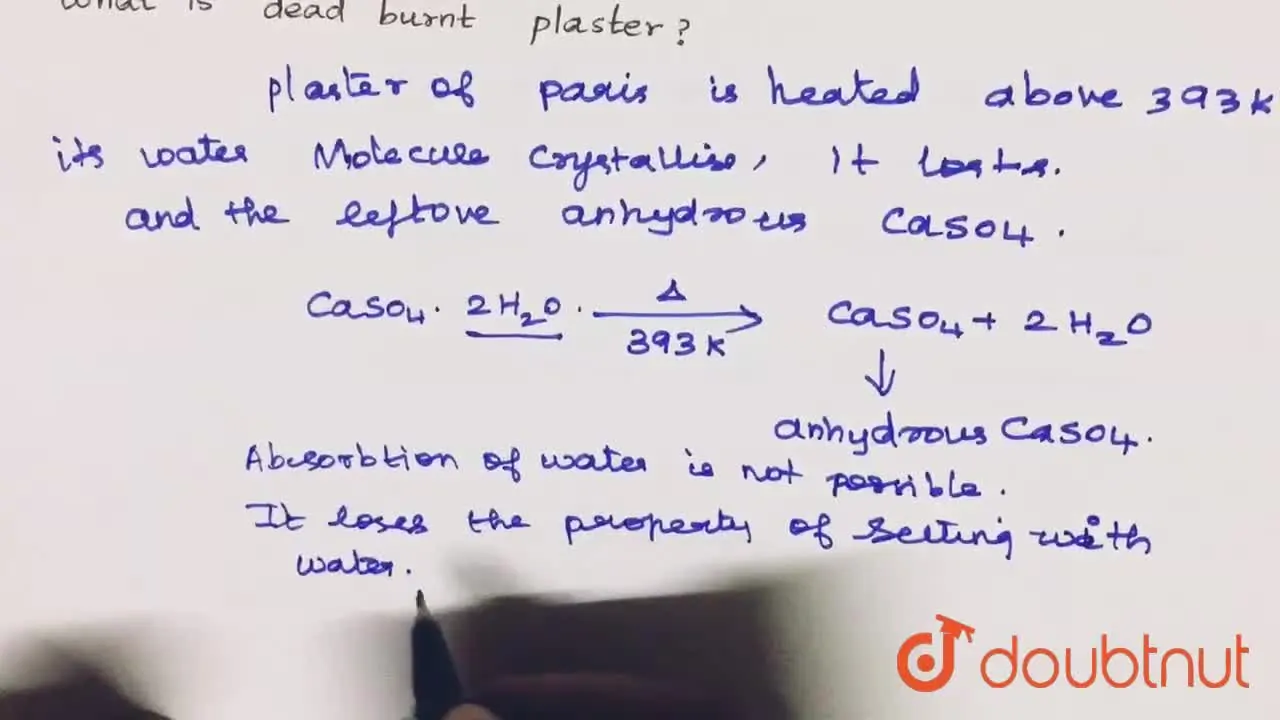 What is dead burnt plaster?
plaster of paris is heated above 393K
its water Molecule crystallise, It losts.
and the leftove anhydrous CaSO4.
CaSO4. 2H2O. Δ CaSO4 + 2H2O
393K
↓
anhydrous CaSO4.
Abcsorbtion of water is not possible.
It loses the property of setting with
water.
doubtnut